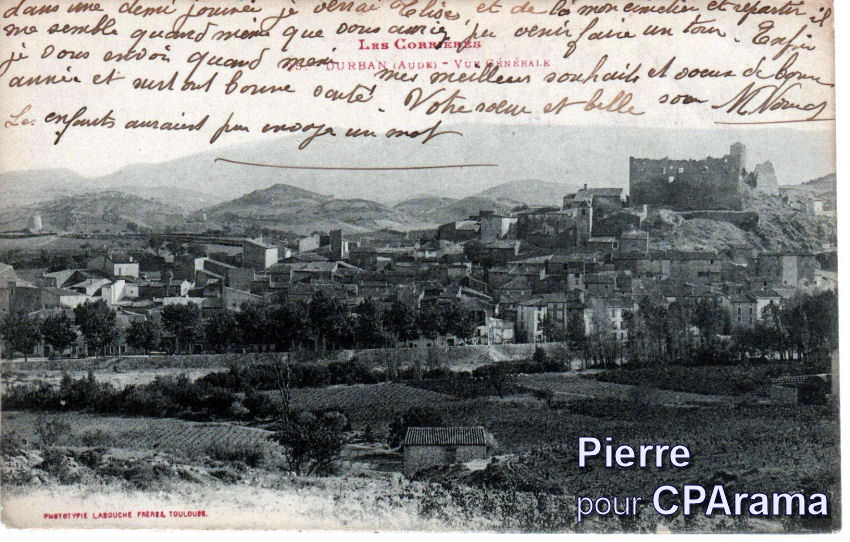 dans une demi journée je verrai Elise et de là mon cimetier et repartir il
me semble quand même que vous auriez pu venir faire un tour. Enfin
LES CORBIÈRES
je vous envoie quand même mes meilleur souhaits et vœux de bonne
DURBAN (AUDE) - VUE GÉNÉRALE
année et surtout bonne santé. Votre sœur et belle sœur
Les enfants auraient pu envoyer un mot
PHOTOTYPIE LABOUCHE FRÈRES, TOULOUSE.
Pierre
pour CPArama